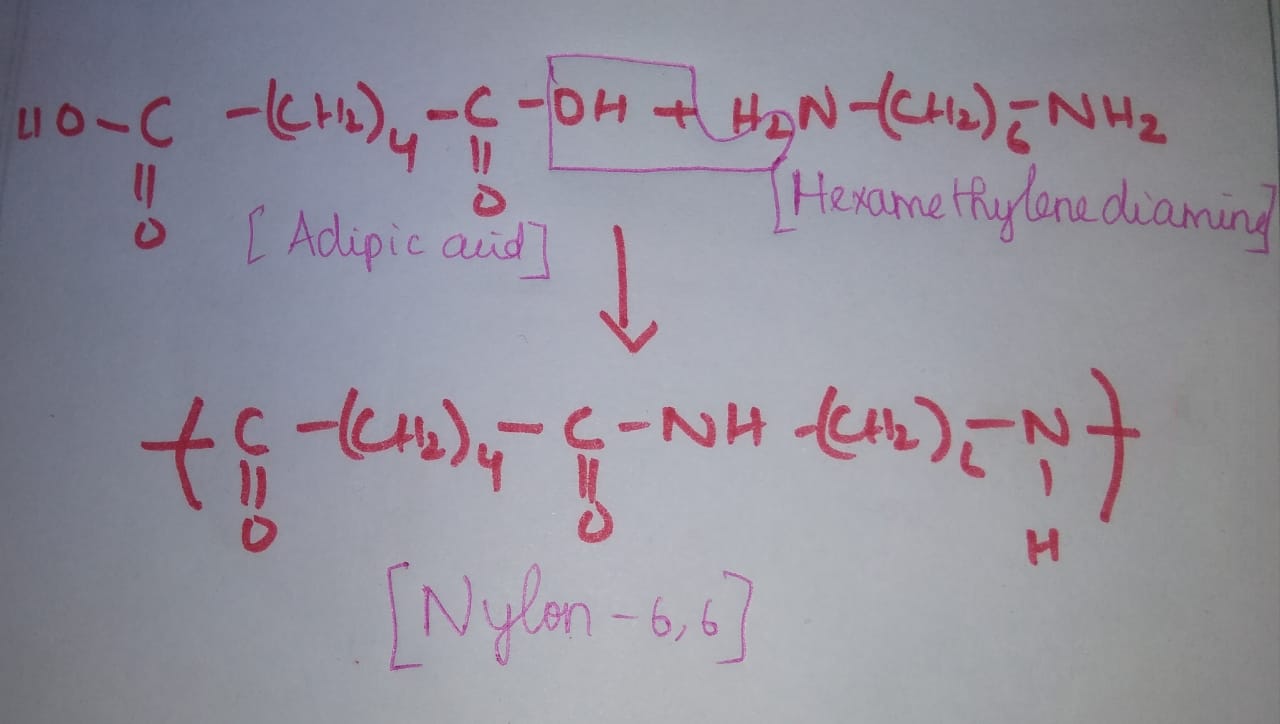 HO-C-(CH2)4-C-OH + H2N-(CH2)6-NH2
|| ||
O O
[Adipic acid] [Hexamethylenediamine]
↓
(C-(CH2)4-C-NH-(CH2)6-N)
|| || |
O O H
[Nylon-6,6]